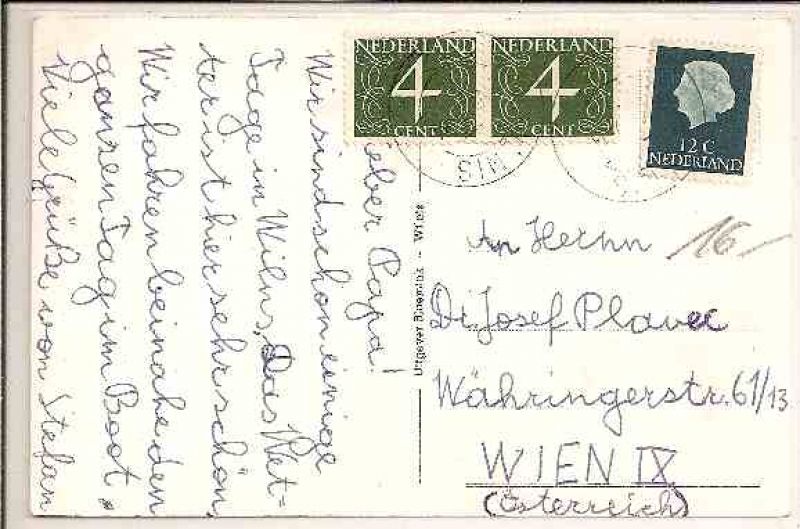 Lieber Papa!
Wir sind schon einige
Tage in Wilnis, Das Wet-
ter ist hier sehr schön,
Wir fahren beinahe den
ganzen Tag im Boot.
Viele Grüße von Stefan
NEDERLAND
4
CENT
NEDERLAND
4
CENT
12 C
NEDERLAND
Uitgever
16-
An Herrn
Di Josef Plavec
Währingerstr. 61/13
WIEN IX
(Österreich)